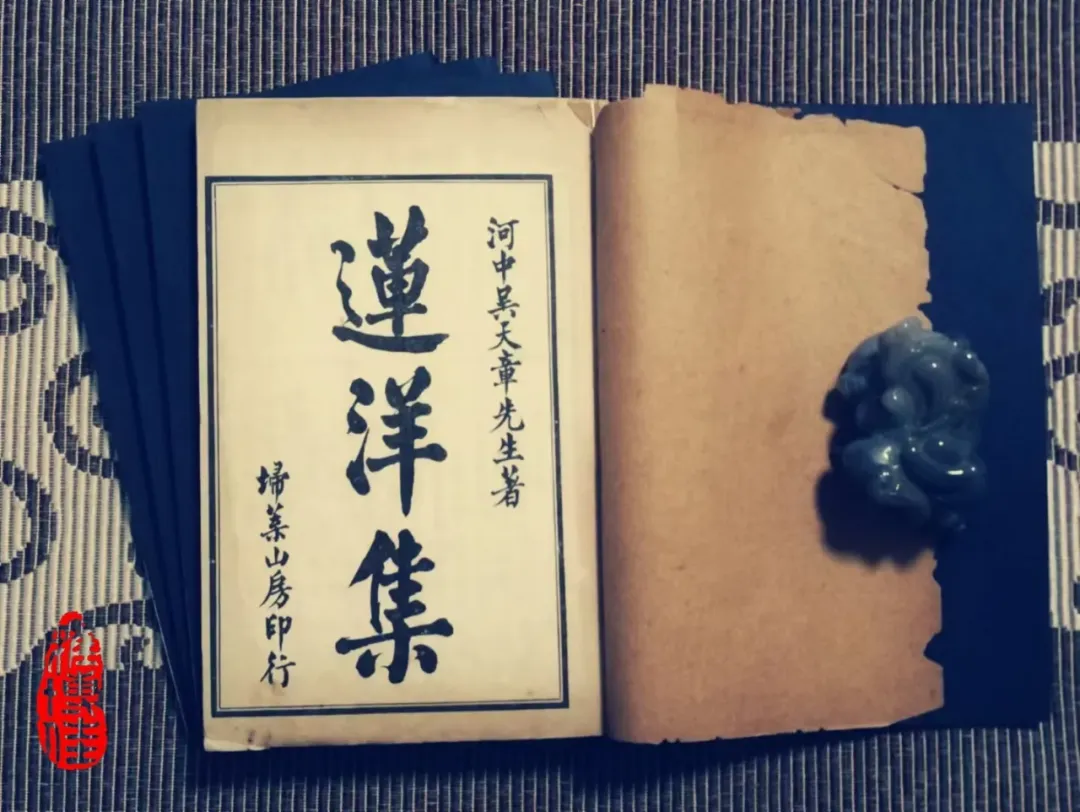 河中吳天章先生著
蓮洋集
埽葉山房印行